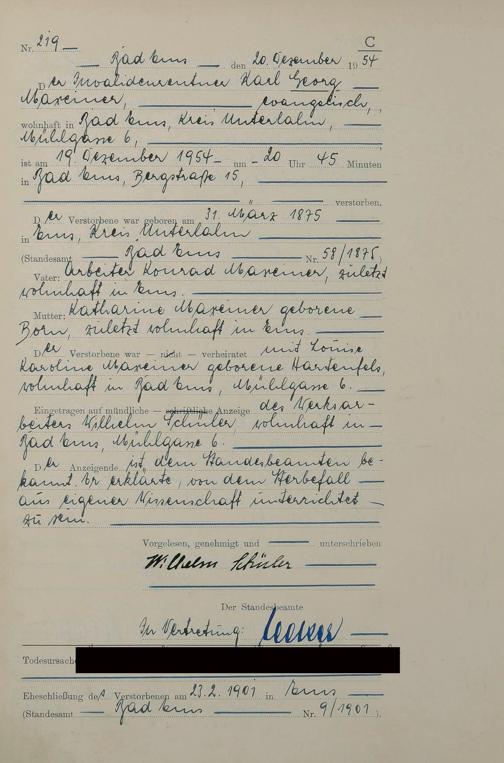 Nr. 219 C
Bad Ems den 20. Dezember 1954
Der Invalidenrentner Karl Georg
Maxeiner, evangelisch,
wohnhaft in Bad Ems, Kreis Unterlahn,
Mühlgasse 6,
ist am 19. Dezember 1954 um 20 Uhr 45 Minuten
in Bad Ems, Bergstraße 15,
verstorben.
Der Verstorbene war geboren am 31. März 1875
in Ems, Kreis Unterlahn
(Standesamt Bad Ems Nr. 58/1875)
Vater: Arbeiter Konrad Maxeiner, zuletzt
wohnhaft in Ems.
Mutter: Katharine Maxeiner geborene
Born, zuletzt wohnhaft in Ems.
Der Verstorbene war — nicht — verheiratet mit Louise
Karoline Maxeiner geborene Hartenfels,
wohnhaft in Bad Ems, Mühlgasse 6.
Eingetragen auf mündliche — schriftliche Anzeige des Werksar-
beiters Wilhelm Schüler, wohnhaft in
Bad Ems, Mühlgasse 6.
Der Anzeigende ist dem Standesbeamten be-
kannt. Er erklärte, von dem Sterbefall
aus eigener Wissenschaft unterrichtet
zu sein.
Vorgelesen, genehmigt und unterschrieben
Wilhelm Schüler
Der Standesbeamte
In Vertretung:
Todesursache
Eheschließung des Verstorbenen am 23.2.1901 in Ems
(Standesamt Bad Ems Nr. 9/1901).